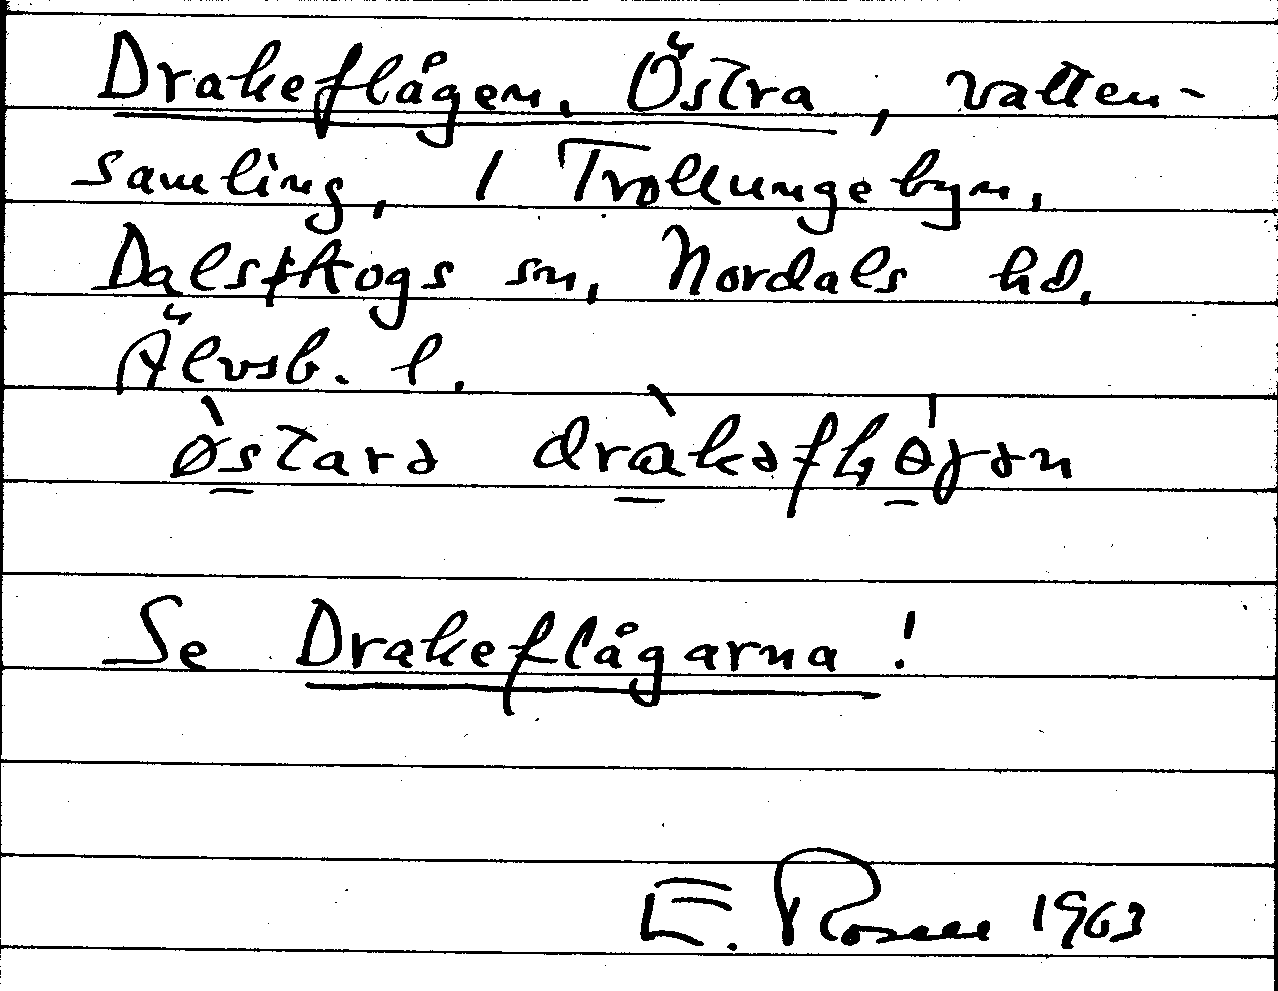 Drakeflågen, Östra, vatten-
samling, I Trollungebyn,
Dalsskogs sn, Nordals hd,
Älvsb. l.
Se Drakeflågarna!
E. Rosell 1963